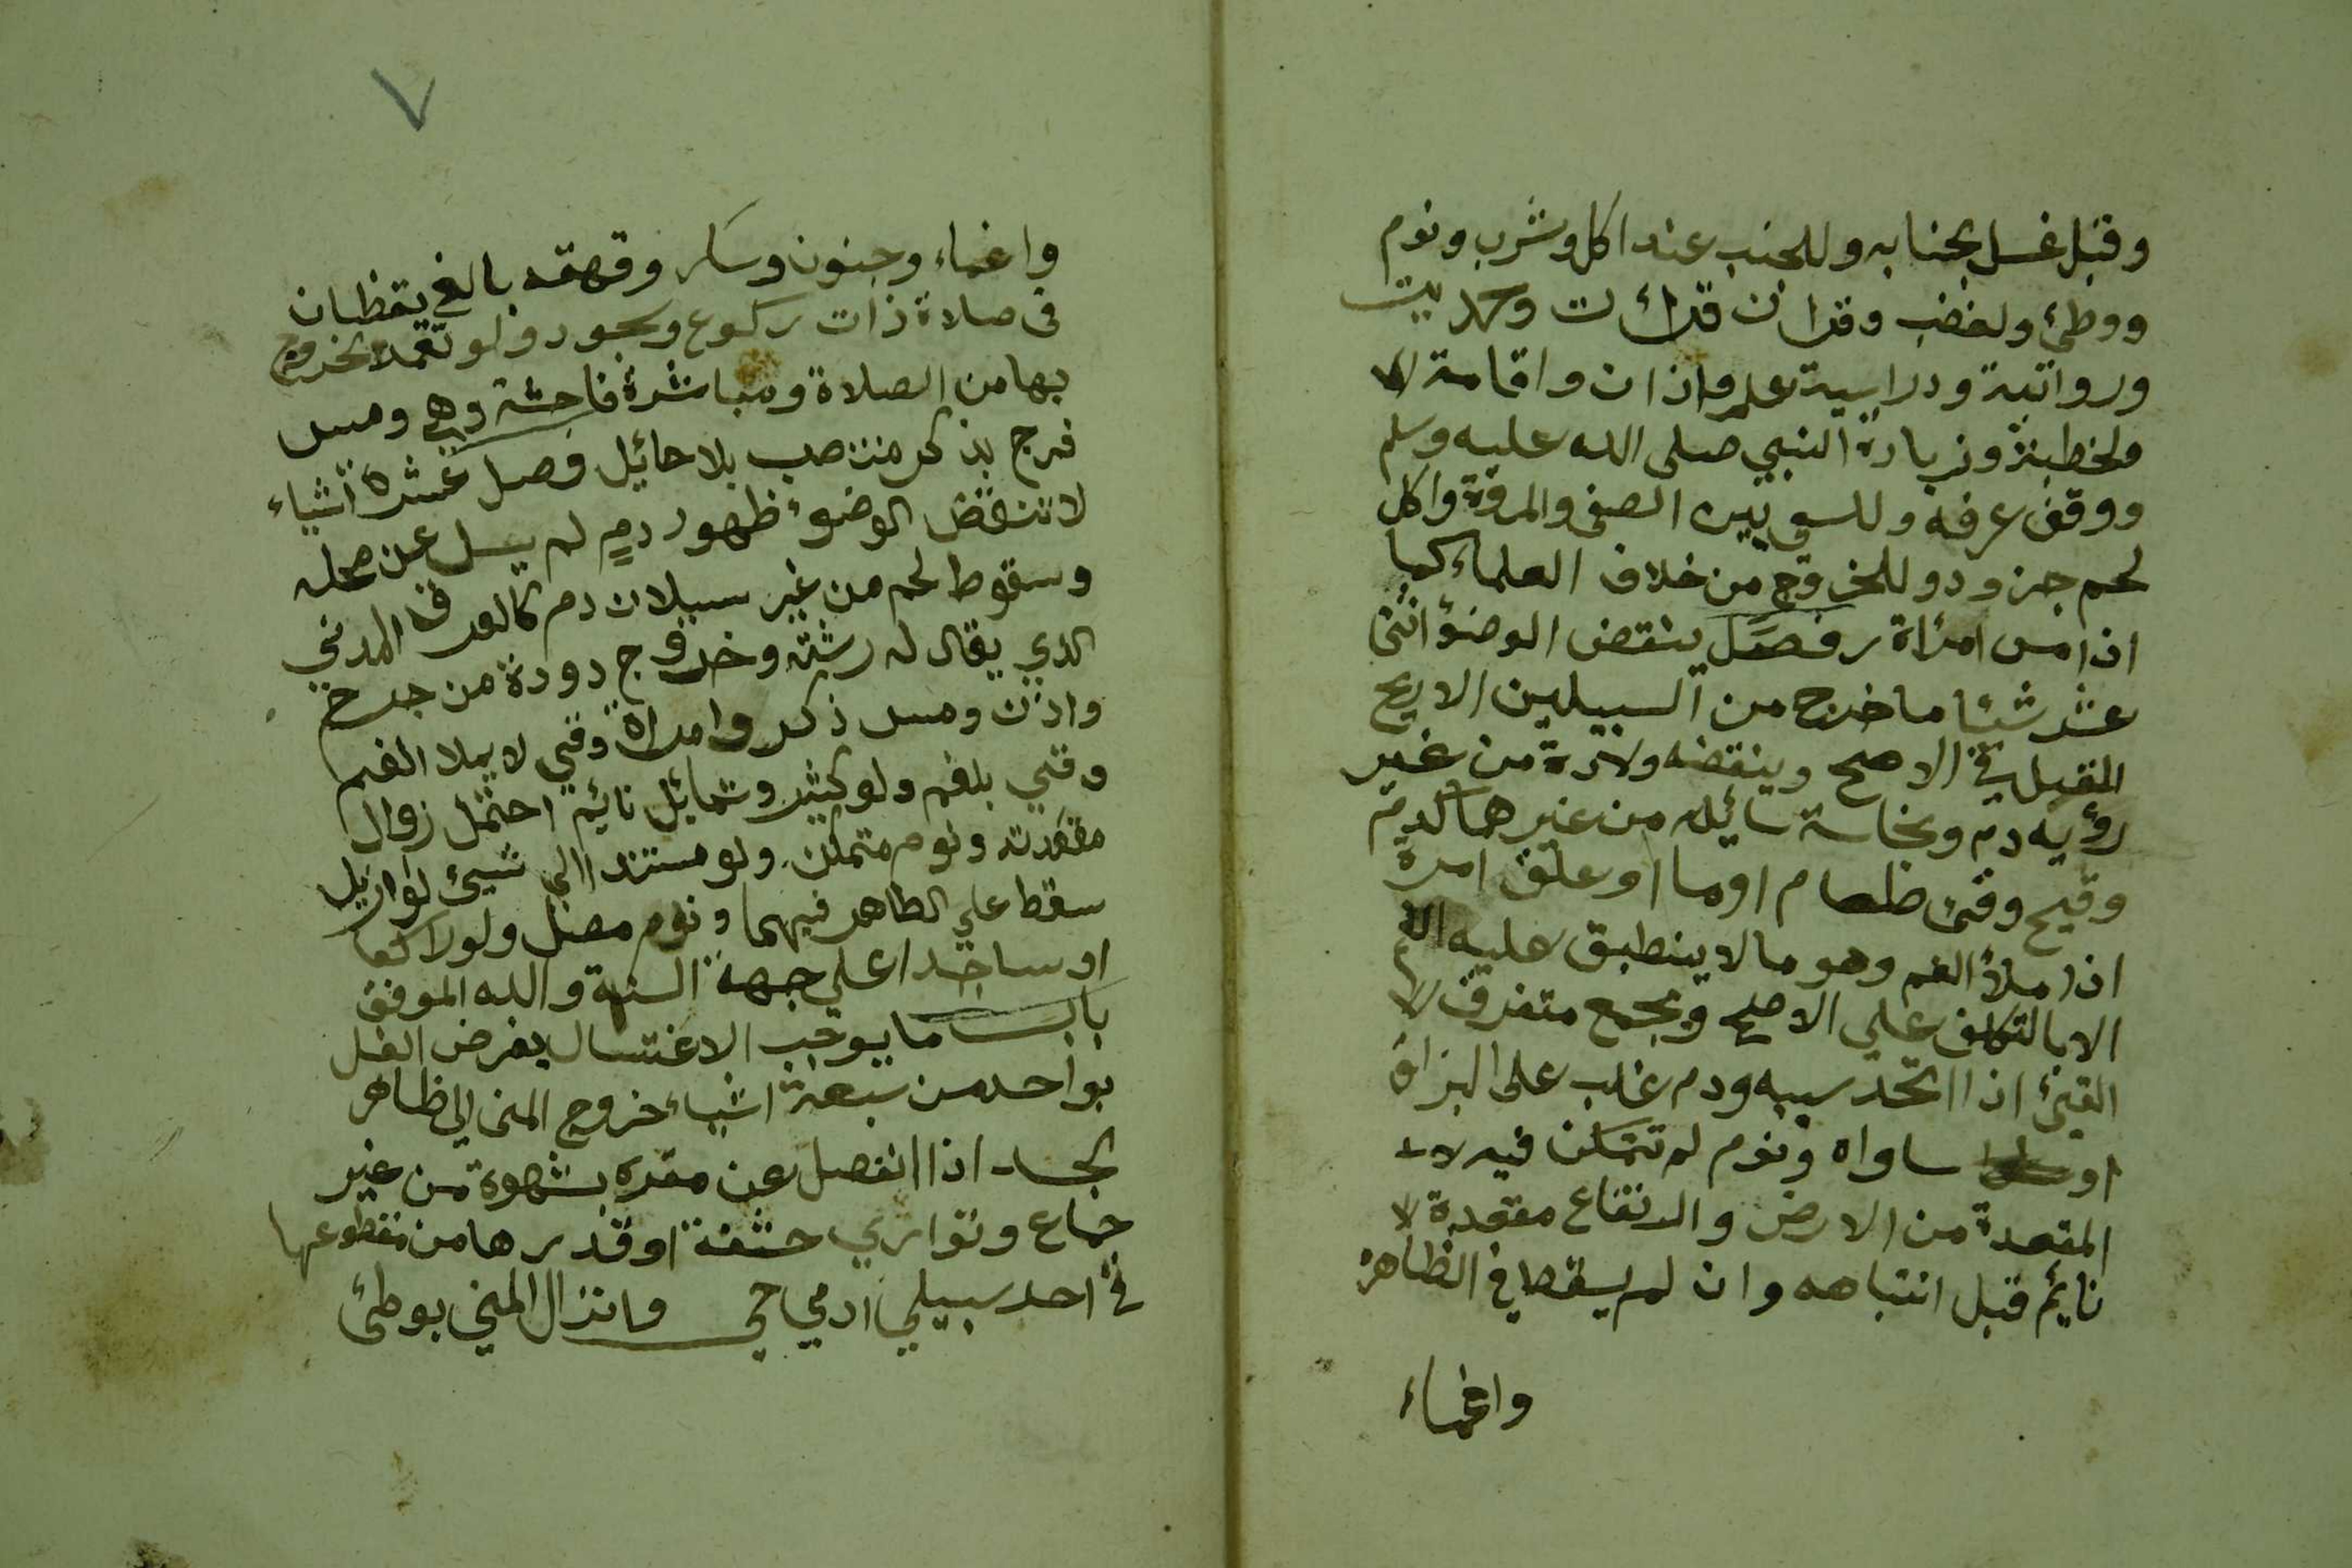 وقبل غسل بجنابه وللجنب عند اكل وشرب ونوم
ووطئ ولغضب وقران وحديث
وروايته ودراسية علم واذان واقامة
ولخطبة وزيارة النبي صلى الله عليه وسلم
ووقف عرفه وللسعي بين الصفى والمروة واكل
لحم جزور وللخروج من خلاف العلماء كما
اذا مس امراة فصل ينقض الوضؤ اثنى
عشر شئا ما خرج من السبيلين الا ريح
القبل في الاصح وينقضه ولادة من غير
رؤيه دم ونجاسة سائله من غيرهما كدم
وقيح وقئ طعام او ما او علق او مرة
اذا ملأ الفم وهو ما لا ينطبق عليه الفم
الا بالتكلف علي الاصح ويجمع متفرق
القيئ اذا اتحد سببه ودم غلب على البزاق
او ساواه ونوم لم تتمكن فيه
المقعدة من الارض والارتفاع مقعدة
نائم قبل انتباهه وان لم يسقط في الظاهر
واغماء
٧
واغماء وجنون وسكر وقهقه بالغ يقظان
فى صلاة ذات ركوع وسجود ولو تعمد الخروج
بها من الصلاة ومباشرة فاحشة وهي ومس
فرج بذكر منتصب بلا حائيل فصل عشرة اشياء
لا تنقض الوضؤ ظهور دم لم يسل عن محله
وسقوط لحم من غير سيلان دم كالعرق المدني
الذي يقال له رشته وخروج دودة من جرح
واذن ومس ذكر وامراة وقي لا يملا الفم
وقي بلغم ولو كثير وتمائل نائم احتمل زوال
مقعدته ونوم متمكن ولو مستندا الي شيئ لو ازيل
سقط علي الظاهر فيهما ونوم مصل ولو راكعا
او ساجدا علي جهة السنة والله الموفق
باب ما يوجب الاغتسال يفرض الغسل
بواحد من سبعة اشياء خروج المنى الي ظاهر
الجسد اذا انفصل عن مقره بشهوة من غير
جماع وتواري حشفة او قدرها من مقطوعها
في احد سبيلي ادمي حي وانزال المني بوطئ